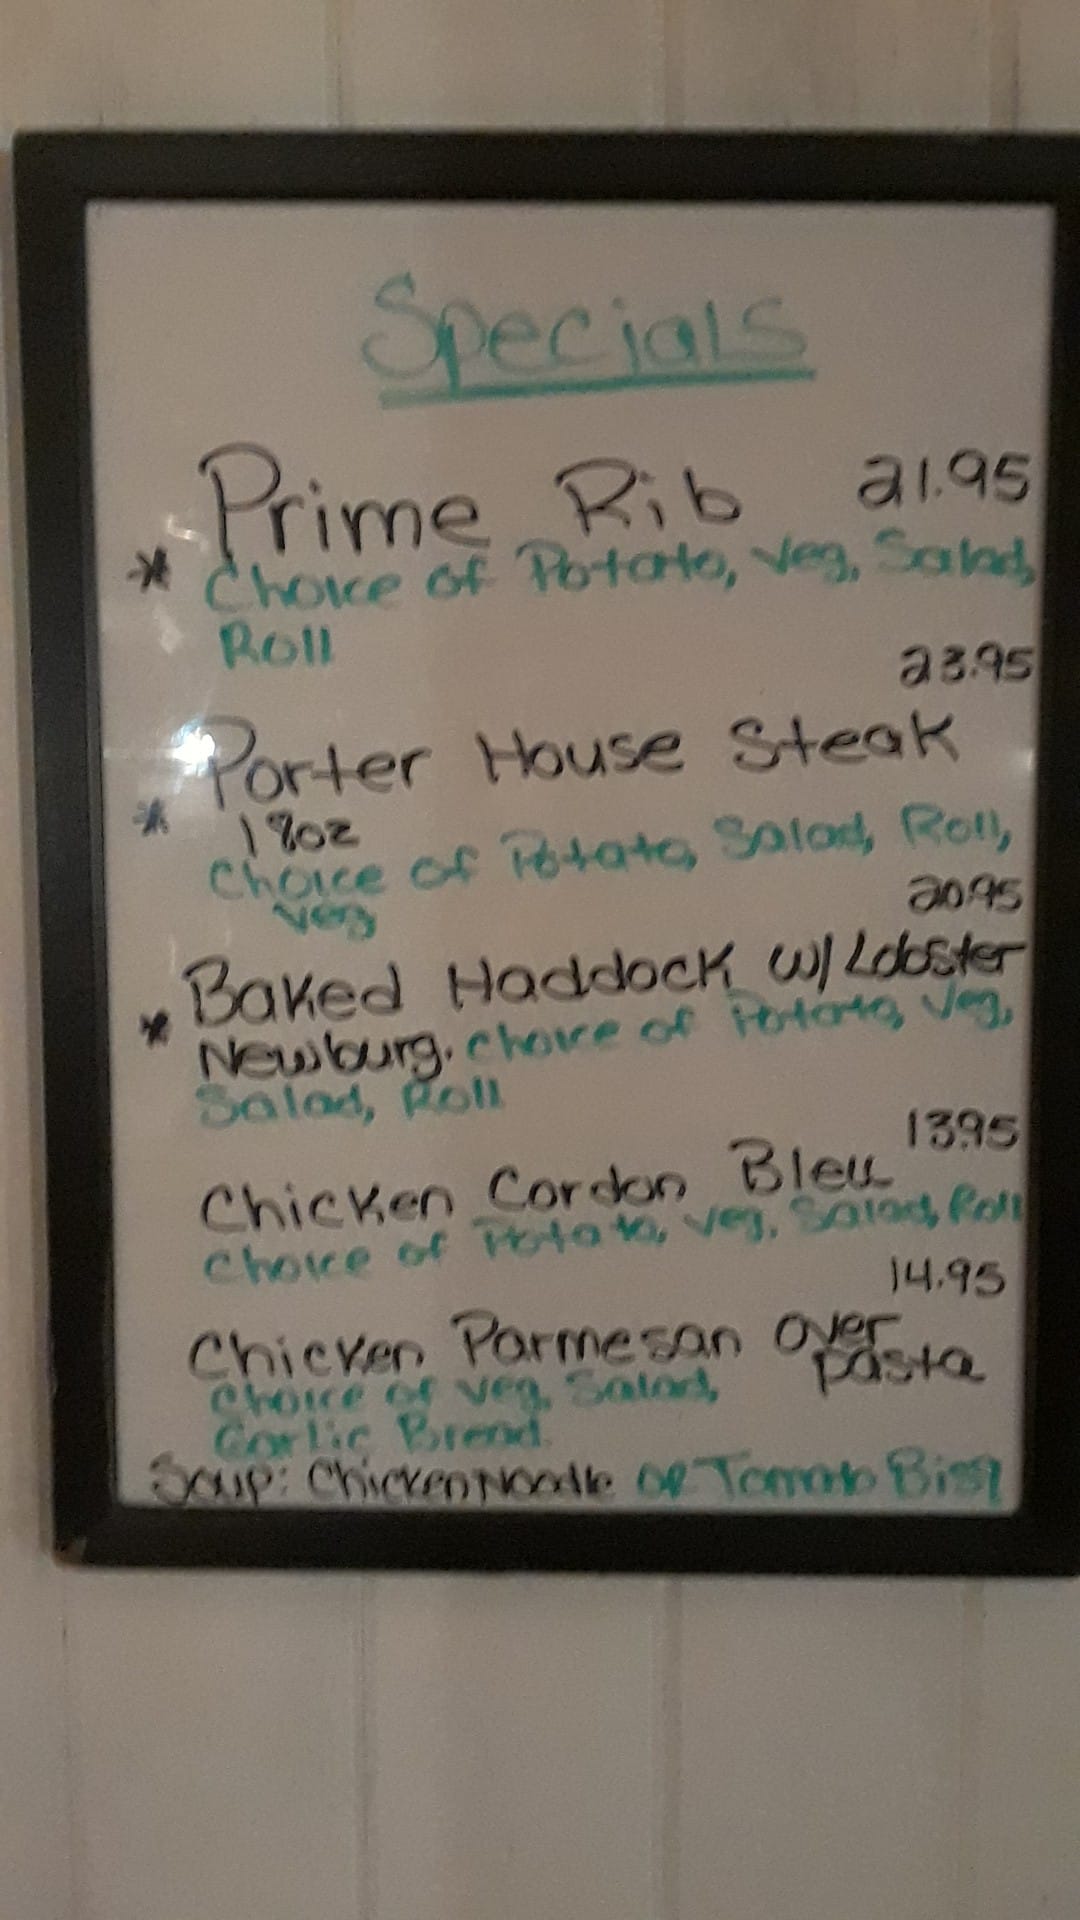 Specials
Prime Rib 21.95
* Choice of Potato, Veg, Salad,
Roll
23.95
Porter House Steak
* 18oz
Choice of Potato, Salad, Roll,
Veg
20.95
Baked Haddock w/ Lobster
* Newburg. Choice of Potato, Veg,
Salad, Roll
13.95
Chicken Cordon Bleu
Choice of Potato, Veg, Salad, Roll
14.95
Chicken Parmesan over
pasta
Choice of Veg, Salad,
Garlic Bread
Soup: Chicken Noodle or Tomato Bisq